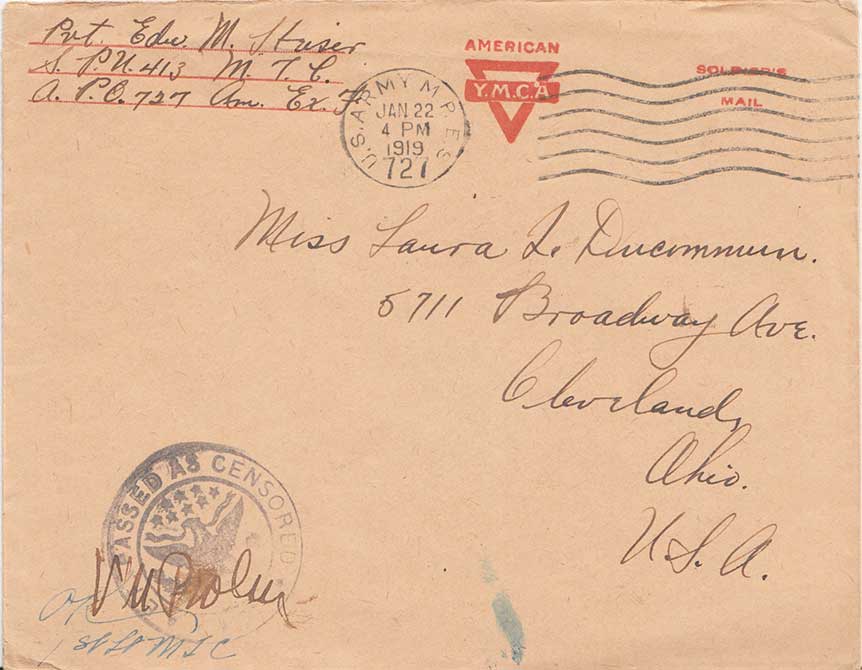 Pvt. Edw. M. Heiser
S. P. U. 413 M. T. C.
A. P. O. 727 Am. Ex. F.
AMERICAN
Y.M.C.A
SOLDIER'S
MAIL
U.S. ARMY M.P.E.S.
JAN 22
4 PM
1919
727
Miss Laura L. Ducommun.
5711 Broadway Ave.
Cleveland,
Ohio.
U.S.A.
PASSED AS CENSORED
OK
1st Lt MTC